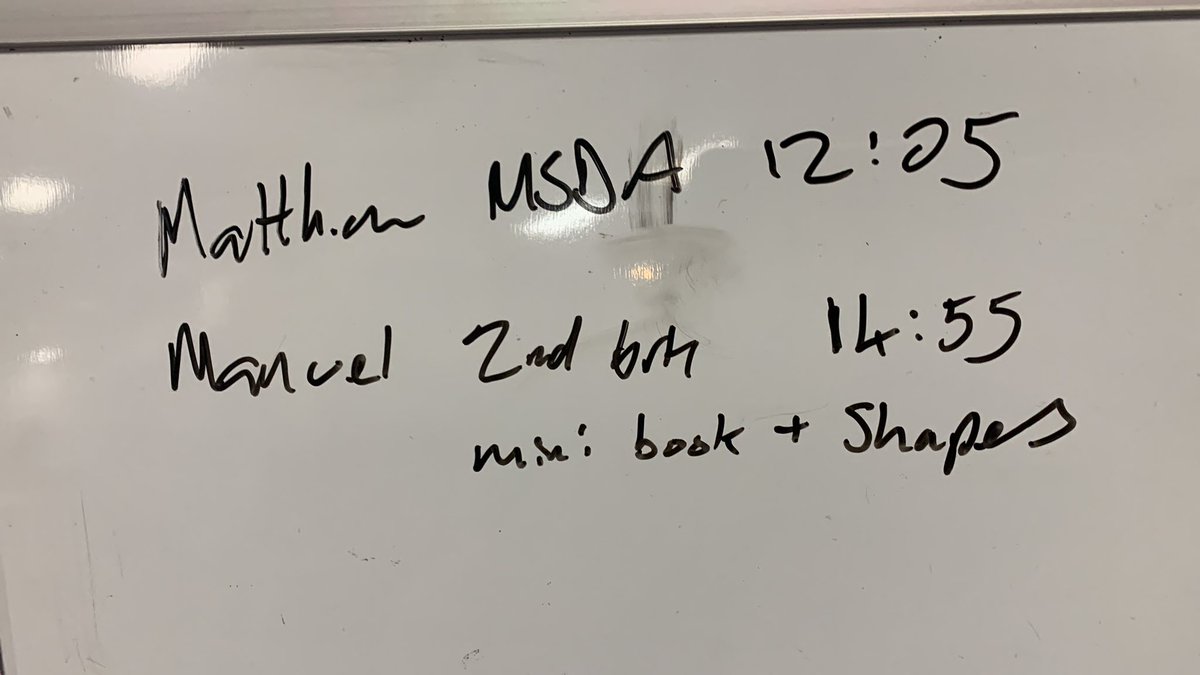 Matthew MSDA 12:05
Manuel 2nd 14:55
mini book + Shapes